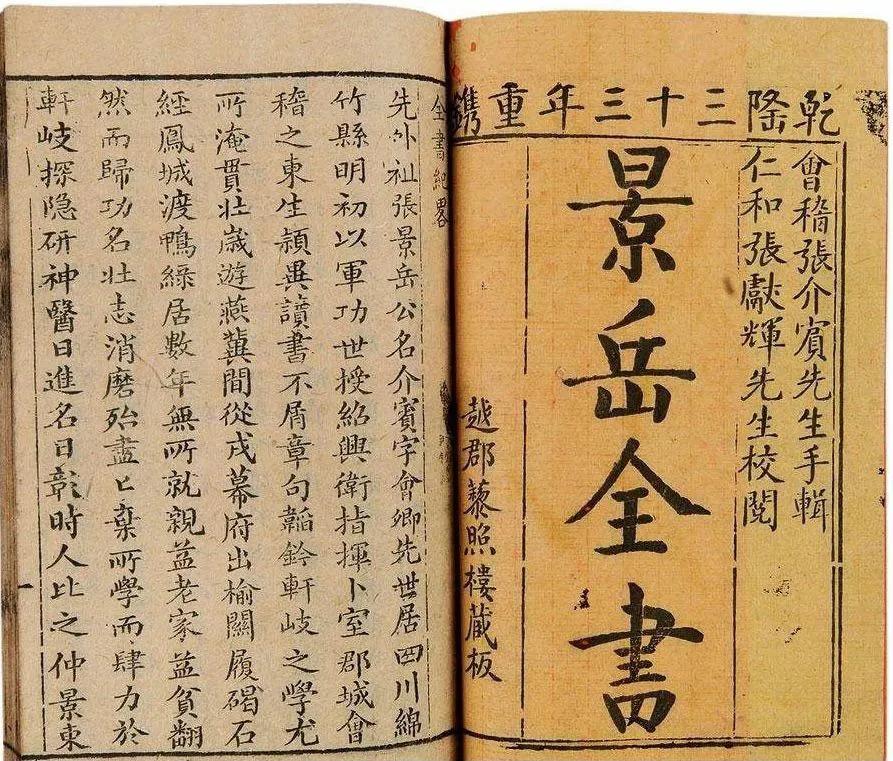 乾隆三十三年重鐫
會稽張介賓先生手輯
仁和張獻輝先生校閱
景岳全書
越郡藜照樓藏板
全書紀畧
先外祖張景岳公名介賓字會卿先世居四川綿
竹縣明初以軍功世授紹興衛指揮卜室郡城會
稽之東生穎異讀書不屑章句韜鈐軒岐之學尤
所淹貫壯歲遊燕冀間從戎幕府出榆關履碣石
經鳳城渡鴨綠居數年無所就親益老家益貧翻
然而歸功名壯志消磨殆盡匕棄所學而肆力於
軒岐探隐研神醫日進名日彰時人比之仲景東